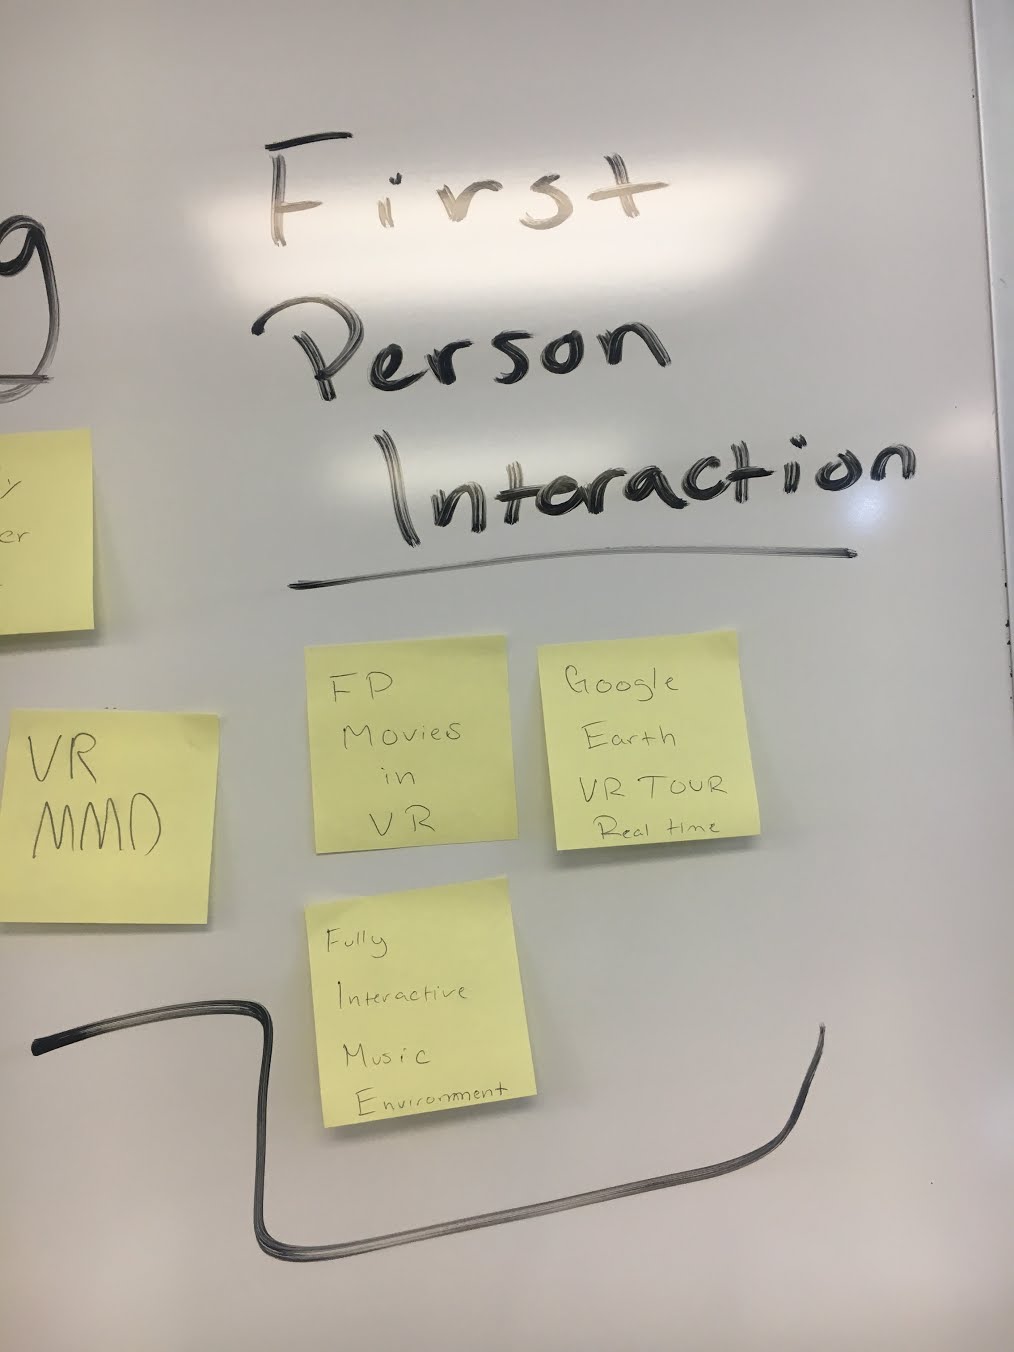 g
First
Person
Interaction
y
er
VR
MMO
FP
Movies
in
VR
Google
Earth
VR TOUR
Real time
Fully
Interactive
Music
Environment